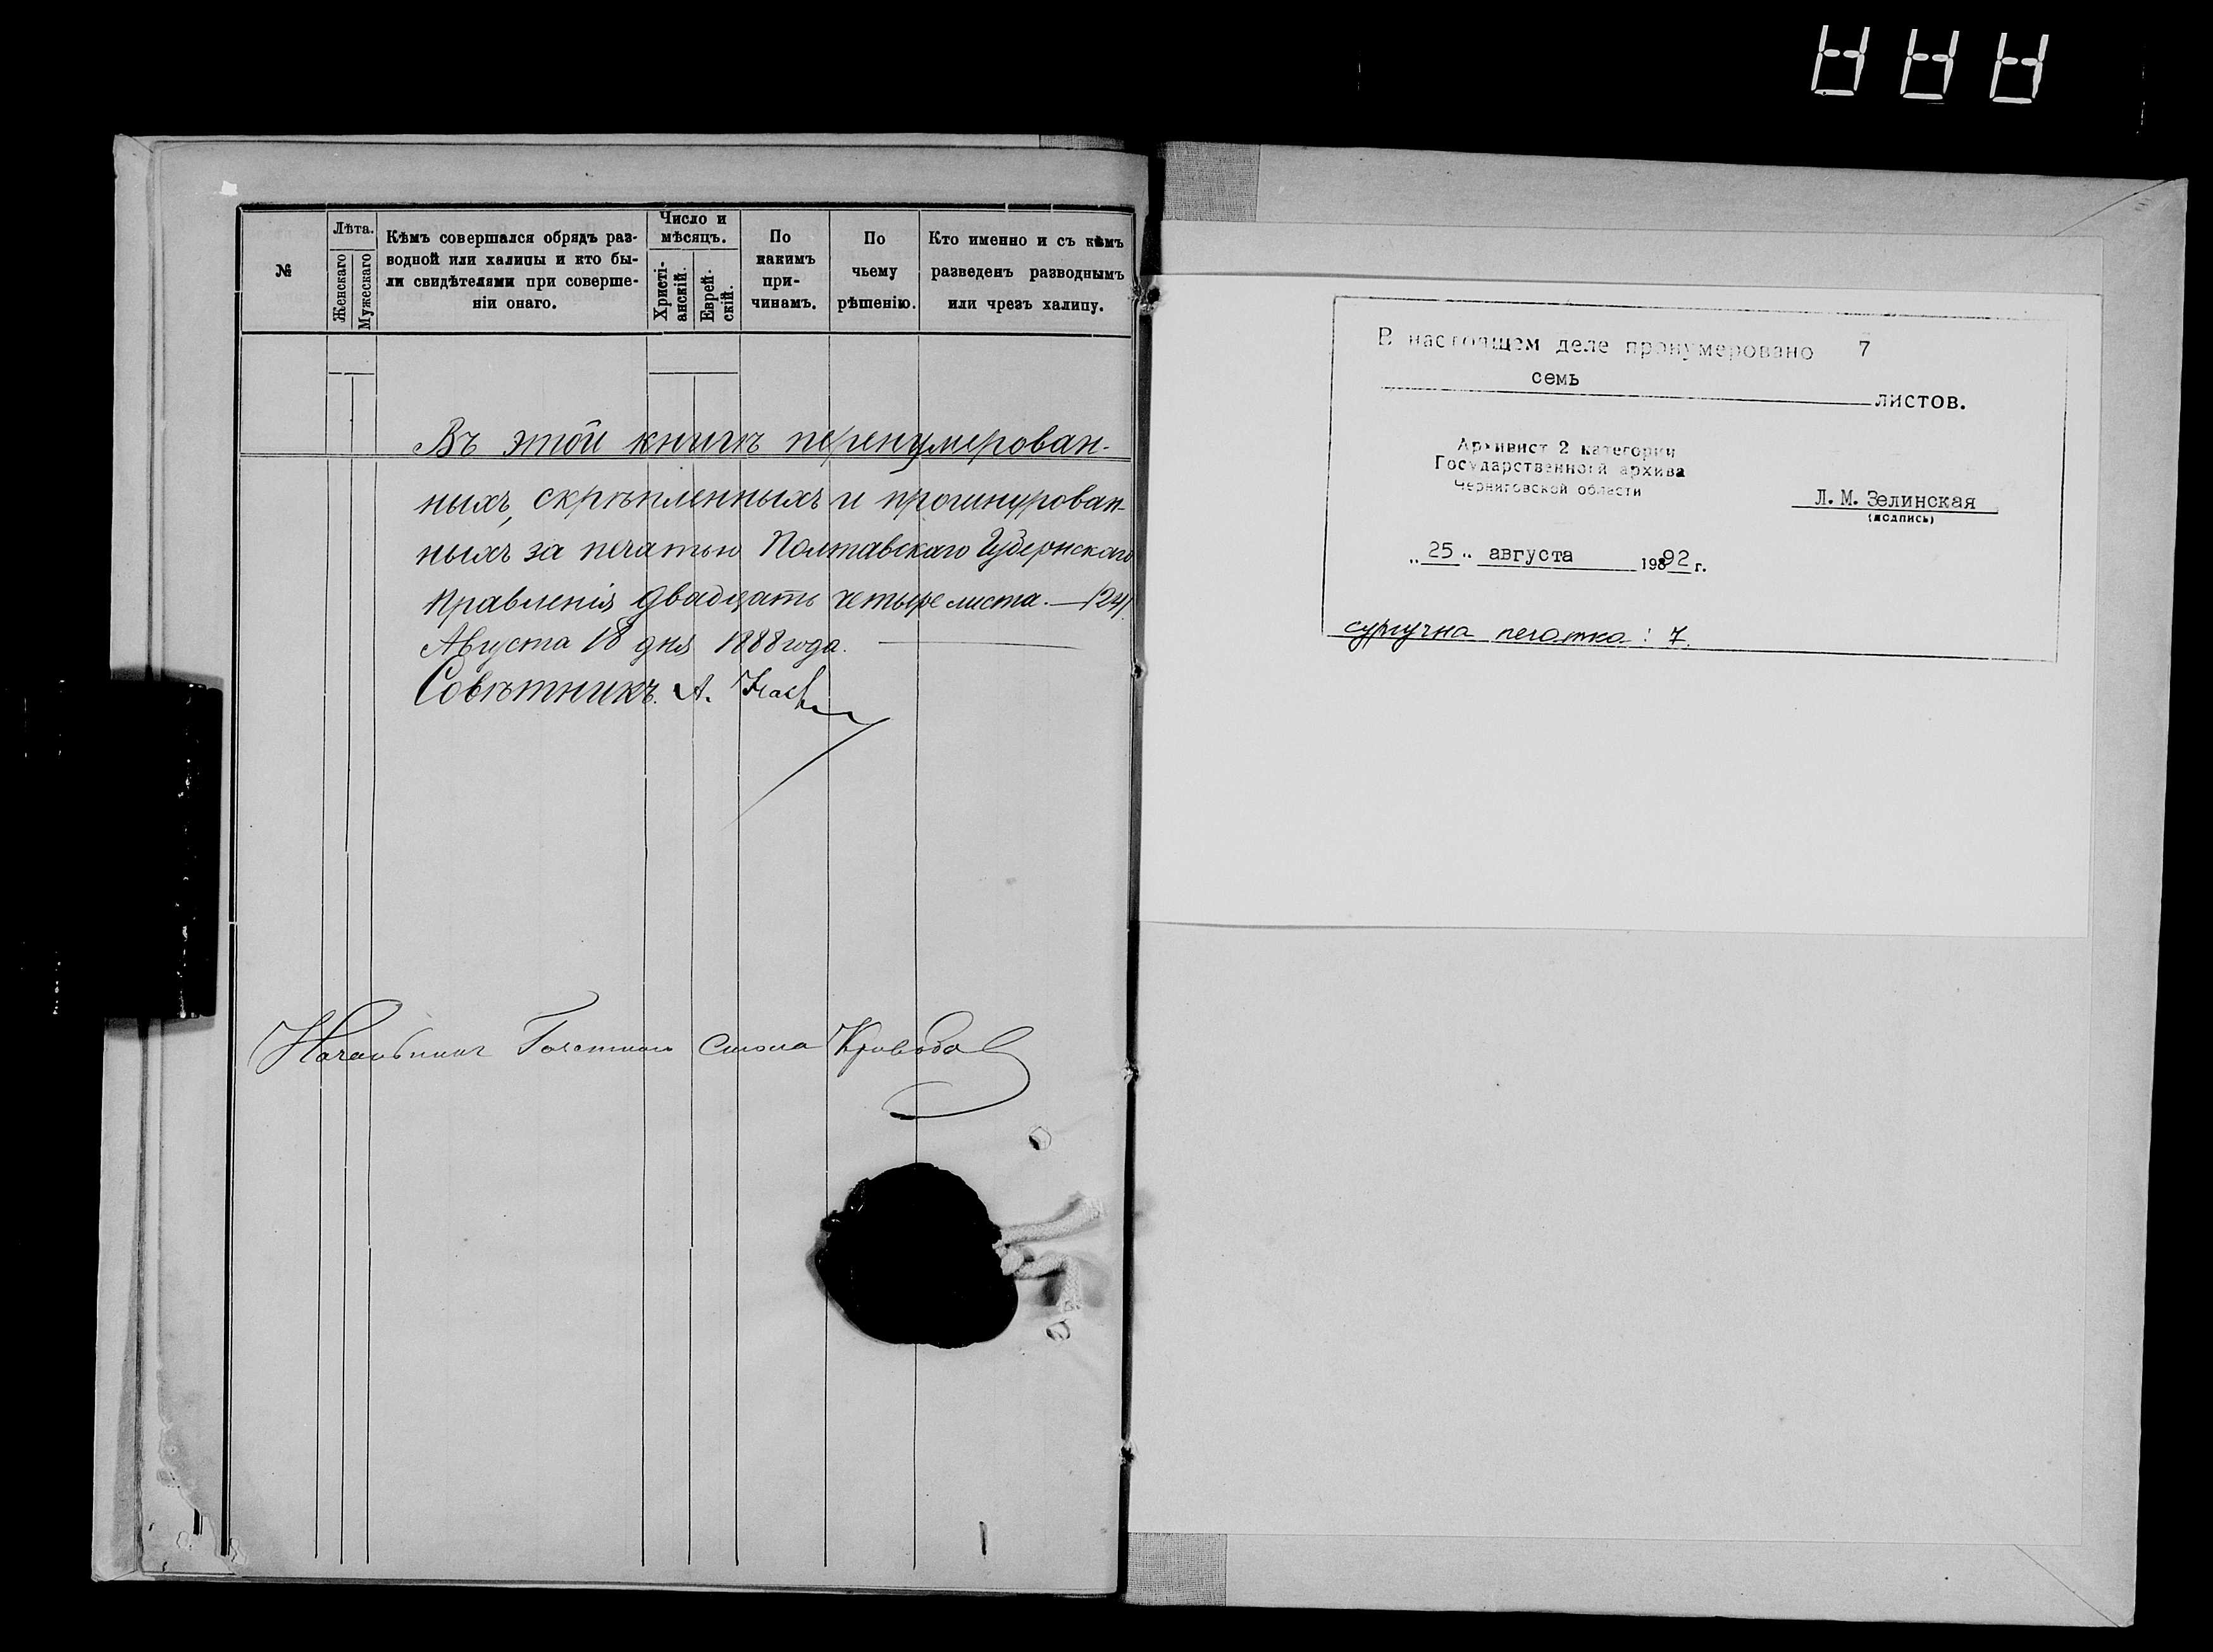 №
Лѣта.
Женскаго
Мужескаго
Кѣмъ совершался обрядъ раз-
водной или халицы и кто бы-
ли свидѣтелями при соверше-
ніи онаго.
Число и
мѣсяцъ.
Христі-
анскій.
Еврей-
скій.
По
какимъ
при-
чинамъ.
По
чьему
рѣшенію.
Кто именно и съ кѣмъ
разведенъ разводнымъ
или чрезъ халицу.
Въ этой книгѣ перенумерован-
ныхъ, скрѣпленныхъ и прошнурован-
ныхъ за печатью Полтавскаго Губернскаго
Правленія двадцать четыре листа. — /24/.
Августа 18 дня 1888 года.
Совѣтникъ А.
Начальникъ Стола
В настоящем деле пронумеровано 7
семь
листов.
Архивист 2 категории
Государственного архива
Черниговской области
Л. М. Зелинская
(подпись)
„ 25 „ августа 19892 г.
сургучна печатка : 7.